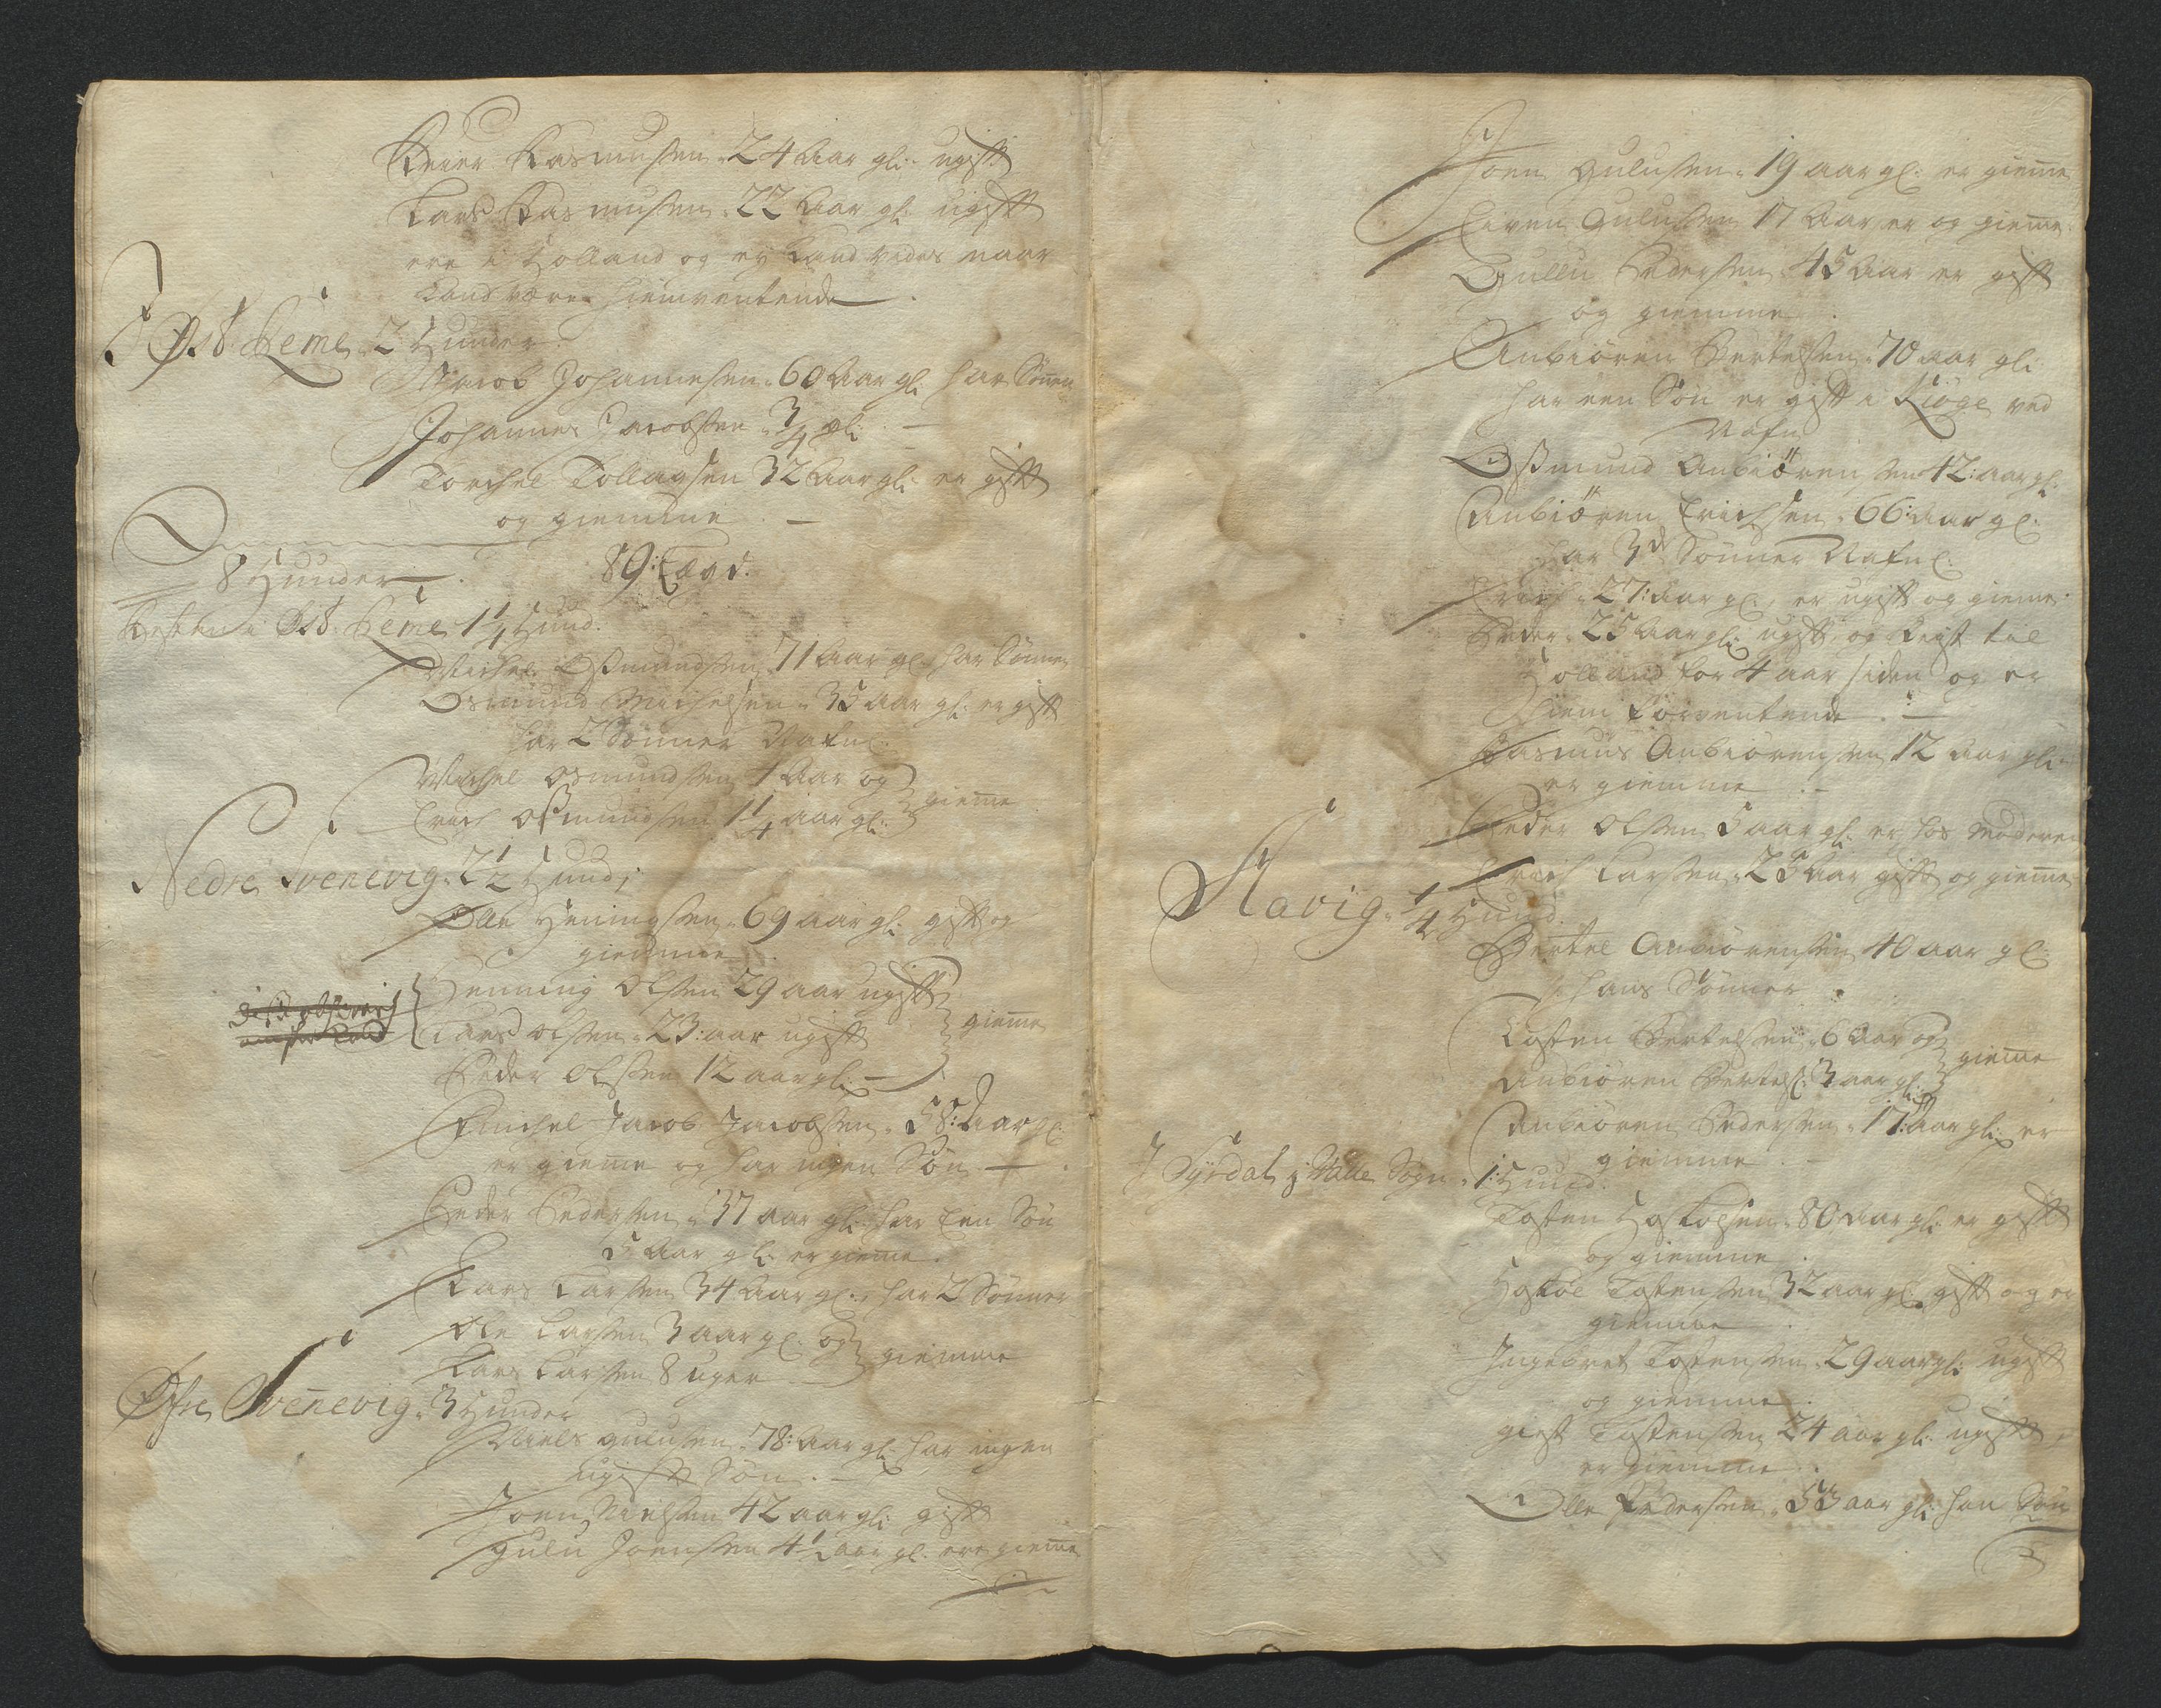 Reier Rasmussen 24 Aar gl: ugift
Lars Rasmussen 22 Aar gl: ugift
ere i Holland og ey kand vides naar
kand være hiemventende
Øst Reme 2 Hunder
Jacob Johannesen 60 Aar gl: har Sønen
Johannes Jacobsen 3/4 gl:
Torchel Tollagsen 32 Aar gl: er gift
og hiemme
8 Hunder 89:
i Øst Reme 1 1/4 Hund:
Michel Osmundsen 71 Aar gl: har Sønnen
Osmund Michelsen 35 Aar gl: er gift
har 2 Sønner Nafnl:
Michel Osmundsen 4 Aar og
Erich Osmundsen 1 1/4 aar gl: hieme
Nedre Svenevig 2 1/2 Hund;
Olle Heningsen 69 aar gl: gift og
hiemme
Henning Olsen 29 aar ugift
Lars Olsen 23: aar ugift hieme
Peder Olsen 12 aar gl:
Jacob Jacobsen 58: Aar gl:
er hieme og har ingen Søn
Peder Pedersen 37 aar gl: har Een Søn
5 Aar gl: er hieme
Lars Larsen 34 Aar gl: har 2 Sønner
Ole Larsen 3 aar gl: og
Lars Larsen 8 uger hiemme
Øfre Svenevig 3 Hunder
Niels Gulusen 78: Aar gl: har ingen
ugift Søn
Joen Nielsen 42 aar gl: gift
Gulu Joensen 4 1/2 aar gl: ere hieme
Joen Gulusen 19 aar gl: er hieme
Gulusen 17 Aar er og hieme
Gullu Pedersen 45 Aar er gift
og hiemme
Anbiøren Bertelsen 70 aar gl:
har een Søn er gift i Kiøge ved
Nafn
Osmund Anbiørensen 42: aar gl:
Anbiøren Erichsen 66: Aar gl:
har 3de Sønner Nafnl:
Erich 27: Aar gl: er ugift og hieme
Peder 25 Aar gl: ugift og Reist til
Holland for 4 aar siden og er
Hiem forventende
Rasmus Anbiørensen 12 aar gl:
er hiemme
Peder Olsen 5 aar gl: er hos Moderen
Erich Larsen 25 Aar gift og hieme
Havig 1/4 Hund:
Bertel Anbiørensen 40 aar gl:
hans Sønner
Tosten Bertelsen 6 Aar og
Anbiøren Bertels: 3 aar gl: hieme
Anbiøren Pedersen 17: Aar gl: er
hiemme
J Syrdal j Valle Sogn 1: Hund:
Tosten 80 Aar gl: er gift
og hiemme
Tostensen 32 aar gl: gift og er
hiemme
Ingebret Tostensen 29 aar gl: ugift
og hiemme
Tostensen 24 aar gl: ugift
er hiemme
Olle Pedersen 53 aar gl: har Søn